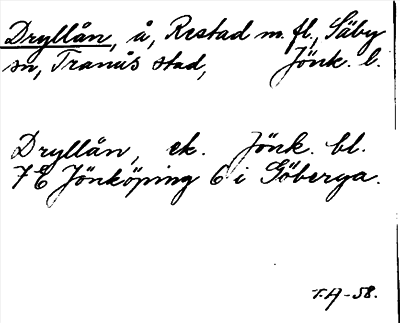 Dryllån, å, Restad m. fl., Säby
sn, Tranås stad, Jönk. l.
Dryllån, ek. Jönk. bl.
7 E Jönköping 6 i Göberga.
T.A-58.